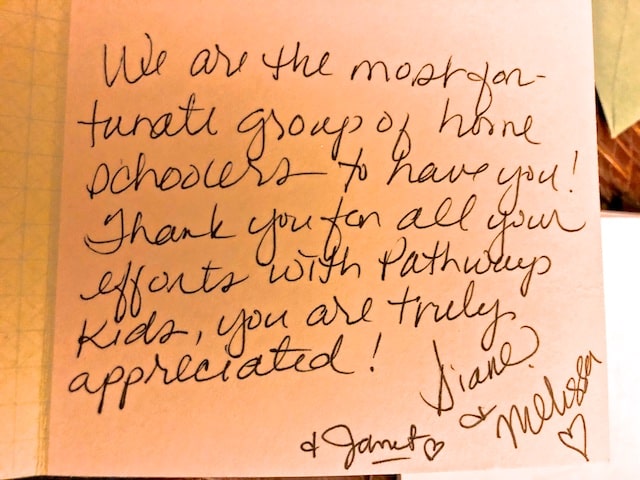 We are the most for-
tunate group of home
schoolers to have you!
Thank you for all your
efforts with Pathways
Kids, you are truly
appreciated!
Diane
& Melissa ♡
& Janet ♡